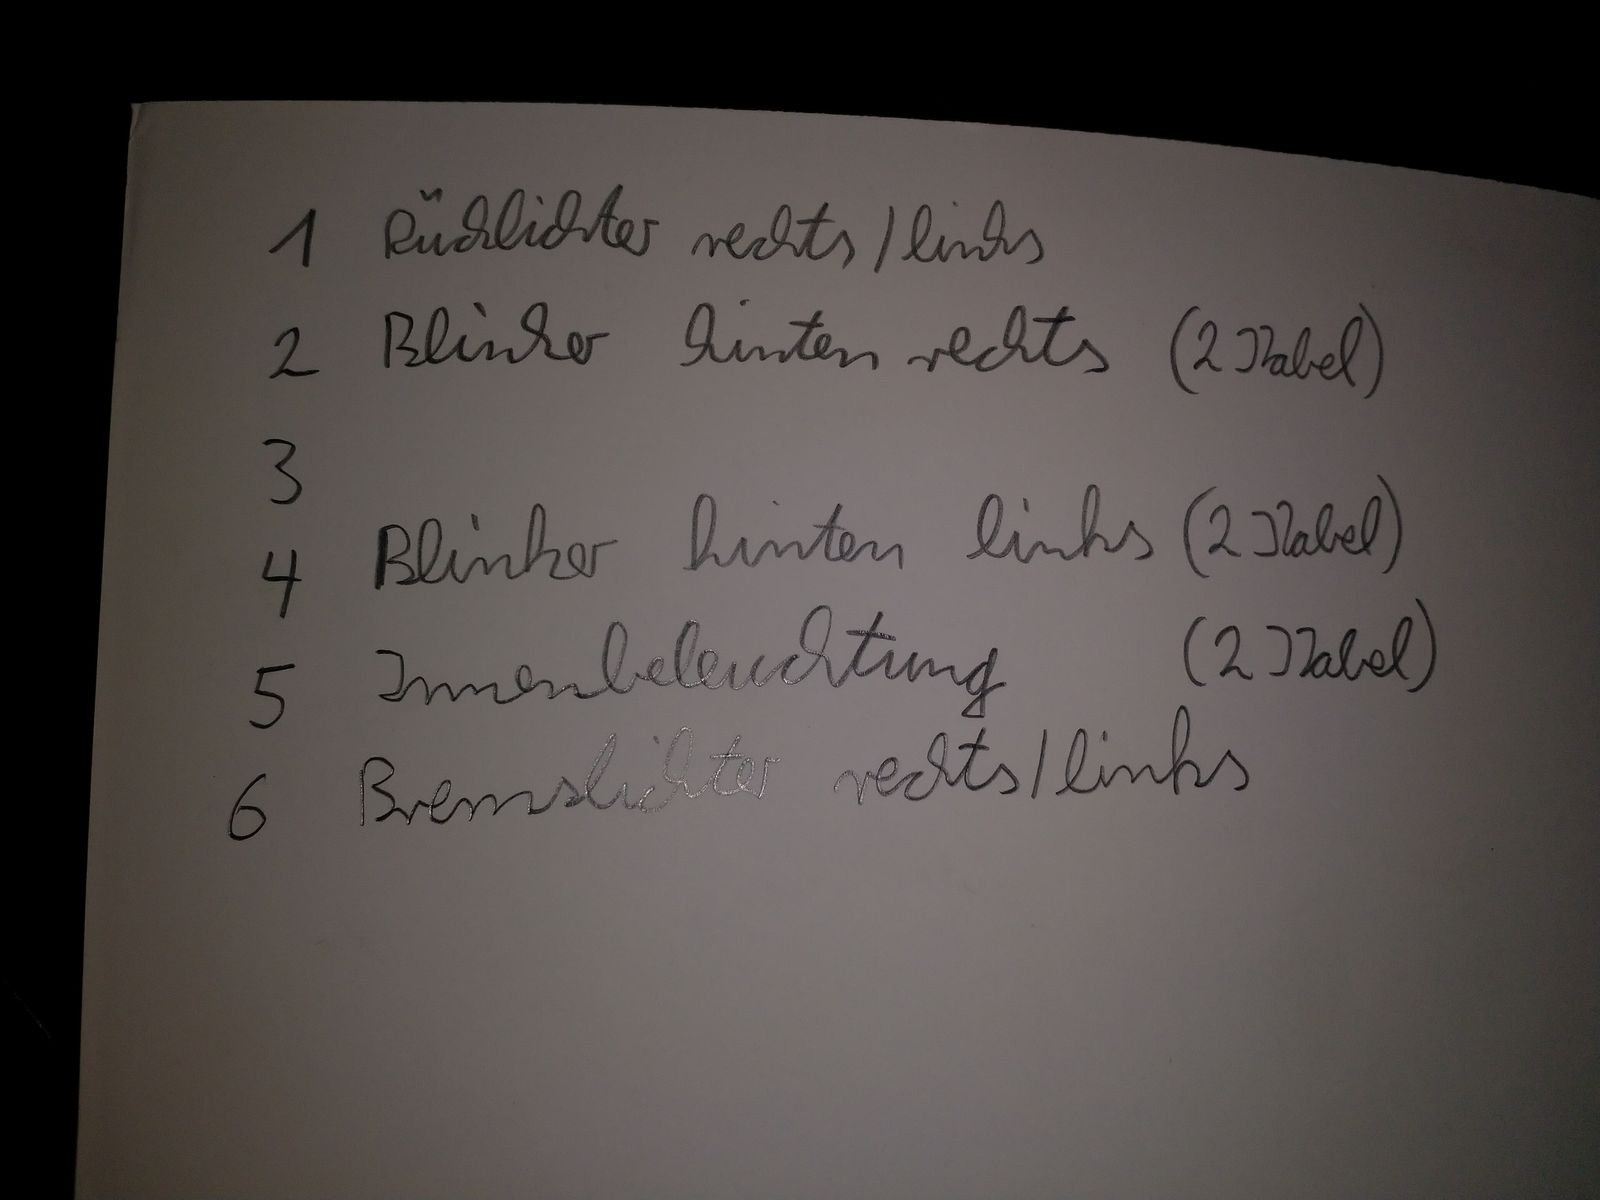 1 Rücklichter rechts/links
2 Blinker hinten rechts (2 Kabel)
3
4 Blinker hinten links (2 Kabel)
5 Innenbeleuchtung (2 Kabel)
6 Bremslichter rechts/links